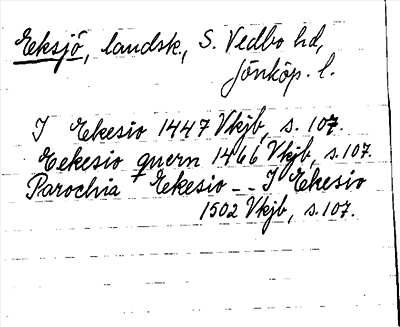 Eksjö, landsk., S. Vedbo hd,
Jönköp. l.
I Ekesio 1447 Vkjb, s. 107.
Eekesio quern 1466 Vkjb, s. 107.
Parochia Ekesio -- I Ekesio
1502 Vkjb, s. 107.